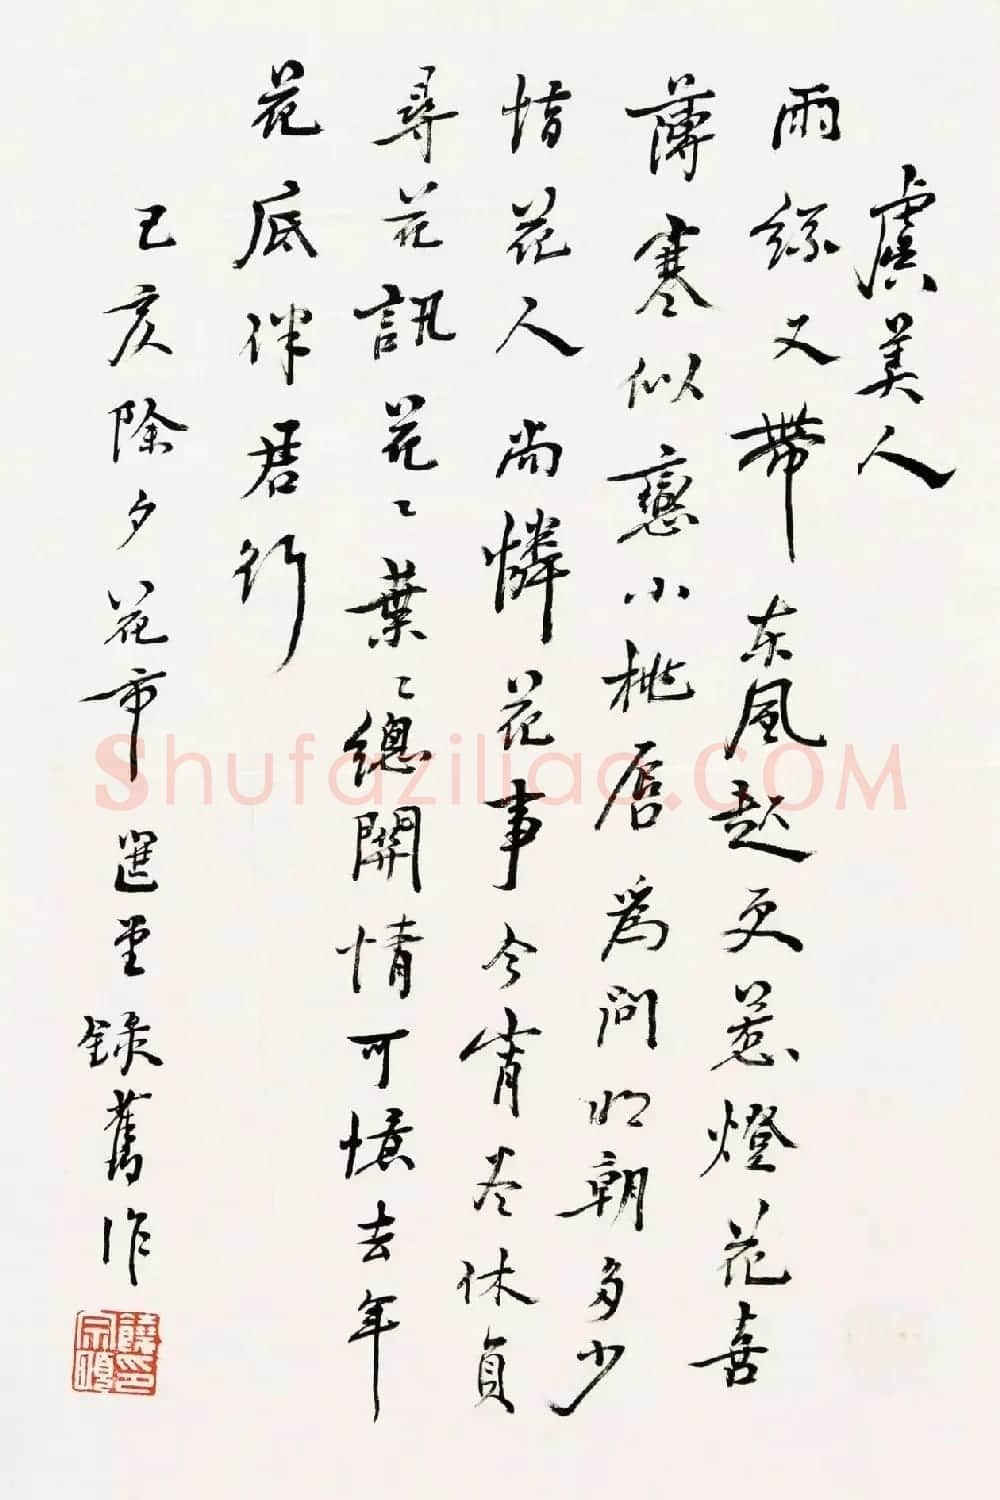 虞美人
雨絲又帶东風起更惹燈花喜
薄寒似戀小桃唇為問明朝多少
惜花人尚憐花事今宵尽休負
尋花訊花〻葉〻總關情可憶去年
花底伴君行
己亥除夕花市 選堂錄舊作
饒宗頤印
Shufaziliao.COM